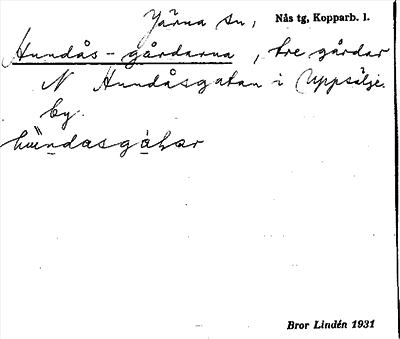 Järna sn, Nås tg, Kopparb. l.
Hundås-gårdarna, tre gårdar
N Hundåsgatan i Uppsälje
by.
Bror Lindén 1931